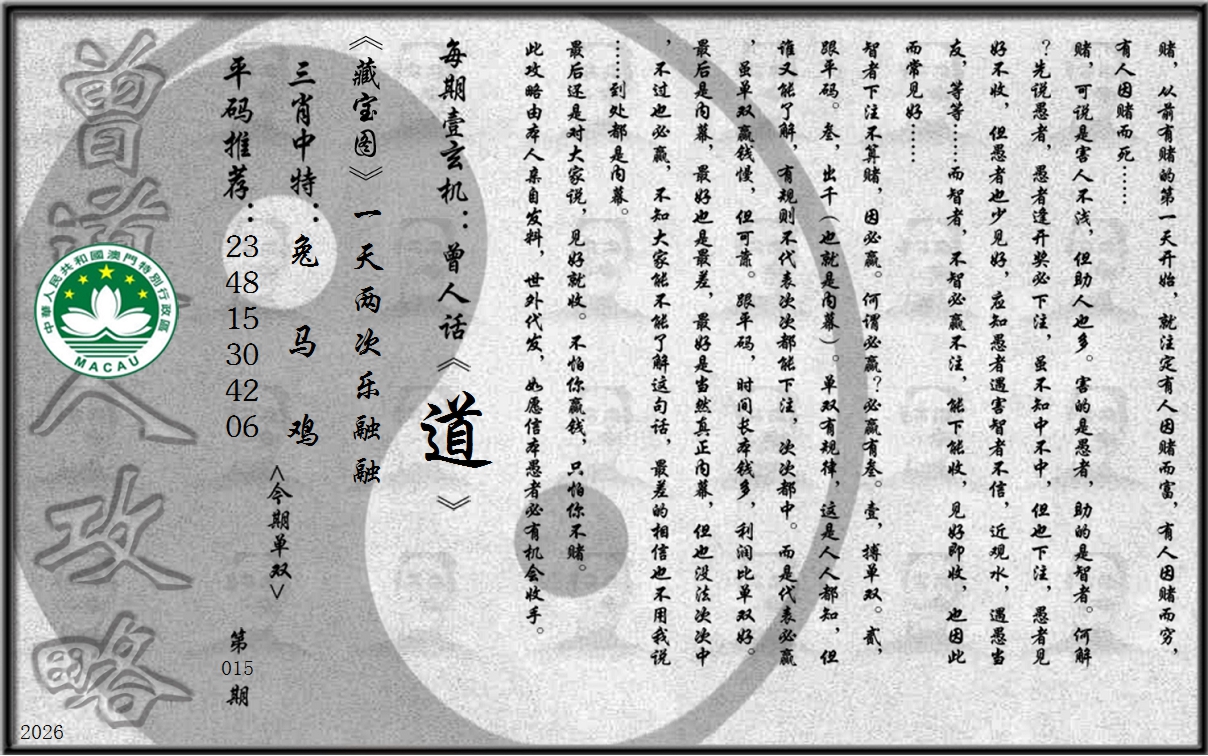 赌，从前有赌的第一天开始，就注定有人因赌而富，有人因赌而穷，
有人因赌而死……
赌，可说是害人不浅，但助人也多。害的是愚者，助的是智者。何解
？先说愚者，愚者逢开奖必下注，虽不知中不中，但也下注，愚者见
好不收，但愚者也少见好，应知愚者遇害智者不信，近观水，遇愚当
友，等等……而智者，不智必赢不注，能下能收，见好即收，也因此
而常见好……
智者下注不算赌，因必赢。何谓必赢？必赢有叁。壹，搏单双。贰，
跟平码。叁，出千（也就是内幕）。单双有规律，这是人人都知，但
谁又能了解，有规则不代表次次都能下注，次次都中。而是代表必赢
，虽单双赢钱慢，但可靠。跟平码，时间长本钱多，利润比单双好。
最后是内幕，最好也是最差，最好是当然真正内幕，但也没法次次中
，不过也必赢，不知大家能不能了解这句话，最差的相信也不用我说
……到处都是内幕。
最后还是对大家说，见好就收。不怕你赢钱，只怕你不赌。
此攻略由本人亲自发料，世外代发，如愿信本愚者必有机会收手。
每期壹玄机：曾人话《道》
《藏宝图》一天两次乐融融
三肖中特：兔 马 鸡
<今期单双>
平码推荐：23 48 15 30 42 06
第015期
曾道人攻略
中華人民共和國澳門特別行政區
MACAU
2026